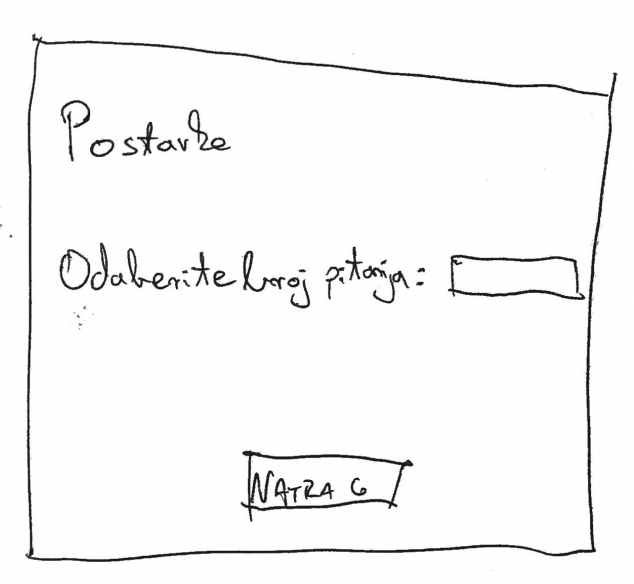 Postavke
Odaberite broj pitanja:
NATRAG